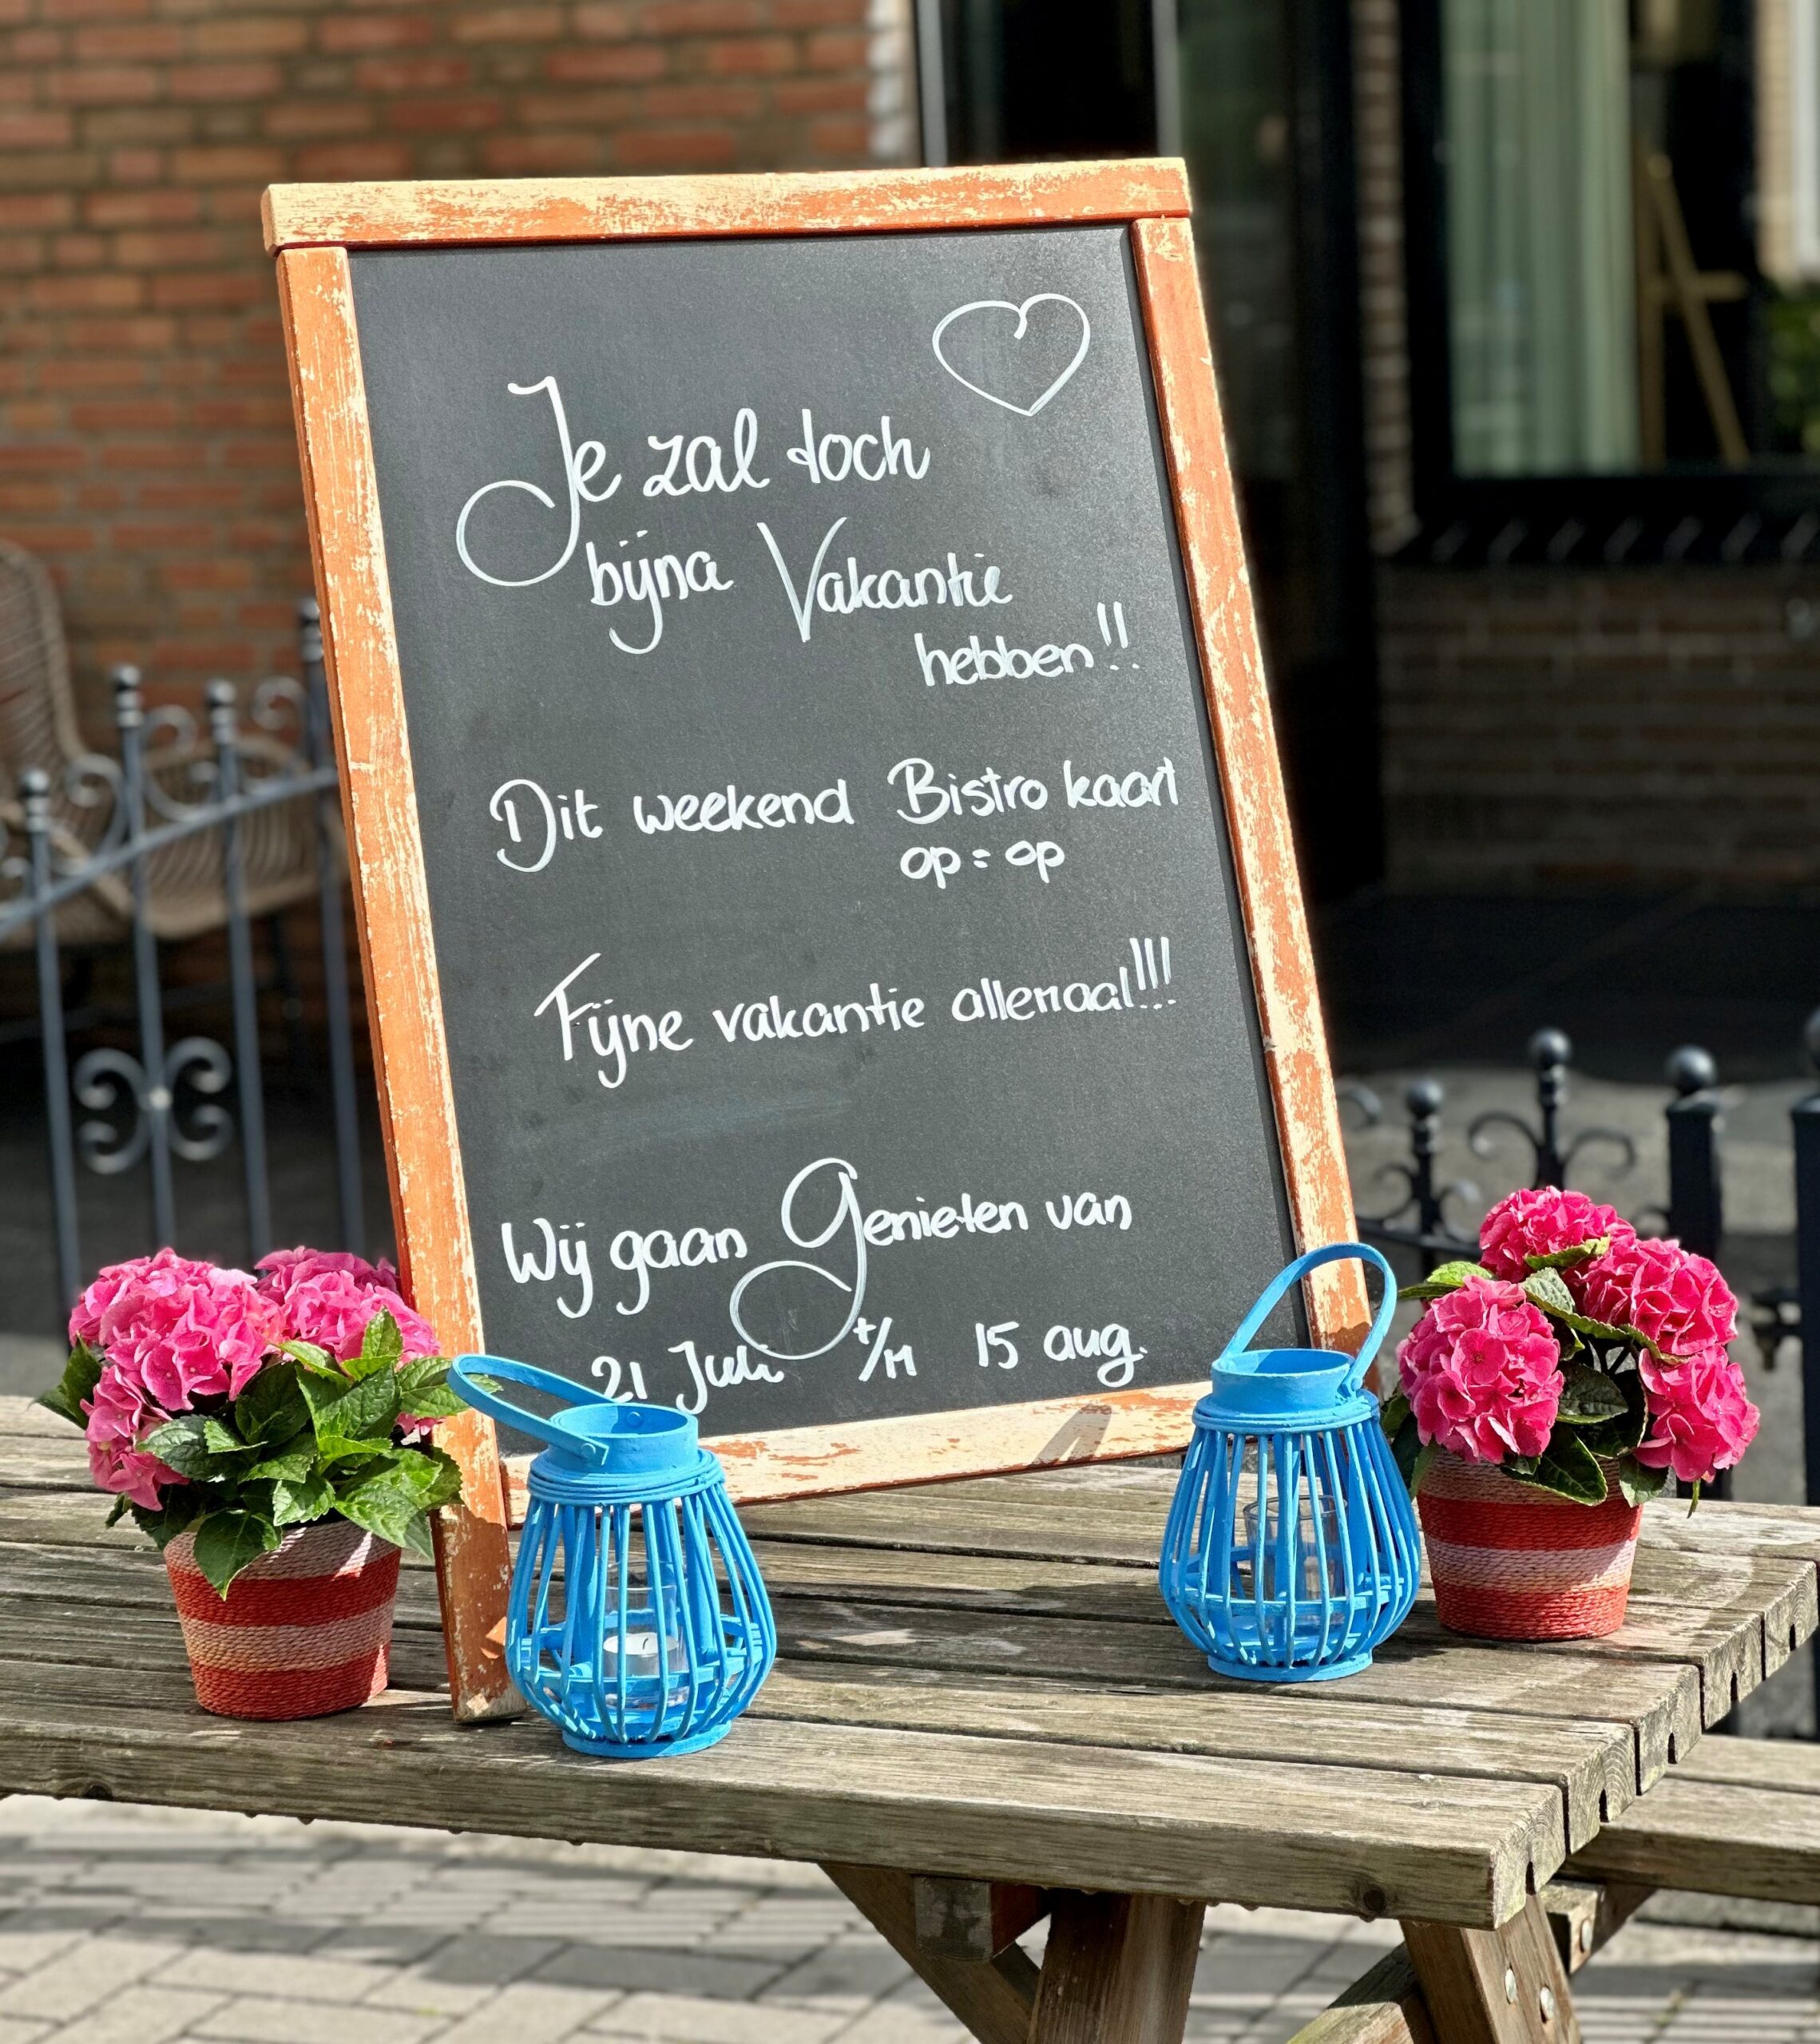 Je zal toch
bijna Vakantie
hebben!!
Dit weekend Bistro kaart
op = op
Fijne vakantie allemaal!!!
Wij gaan Genieten van
21 Juli t/m 15 aug.